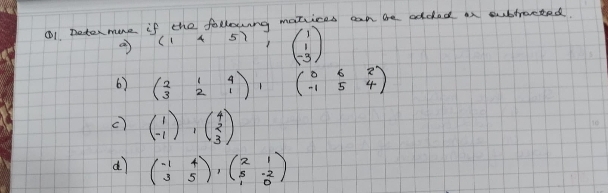 Q1. Determine if the following matrices can be added or subtracted.
a) (1 4 5), (1
1
-3)
b) (2 1 4
3 2 1), (0 6 2
-1 5 4)
c) (1
-1), (4
2
3)
d) (-1 4
3 5), (2 1
5 -2
1 0)